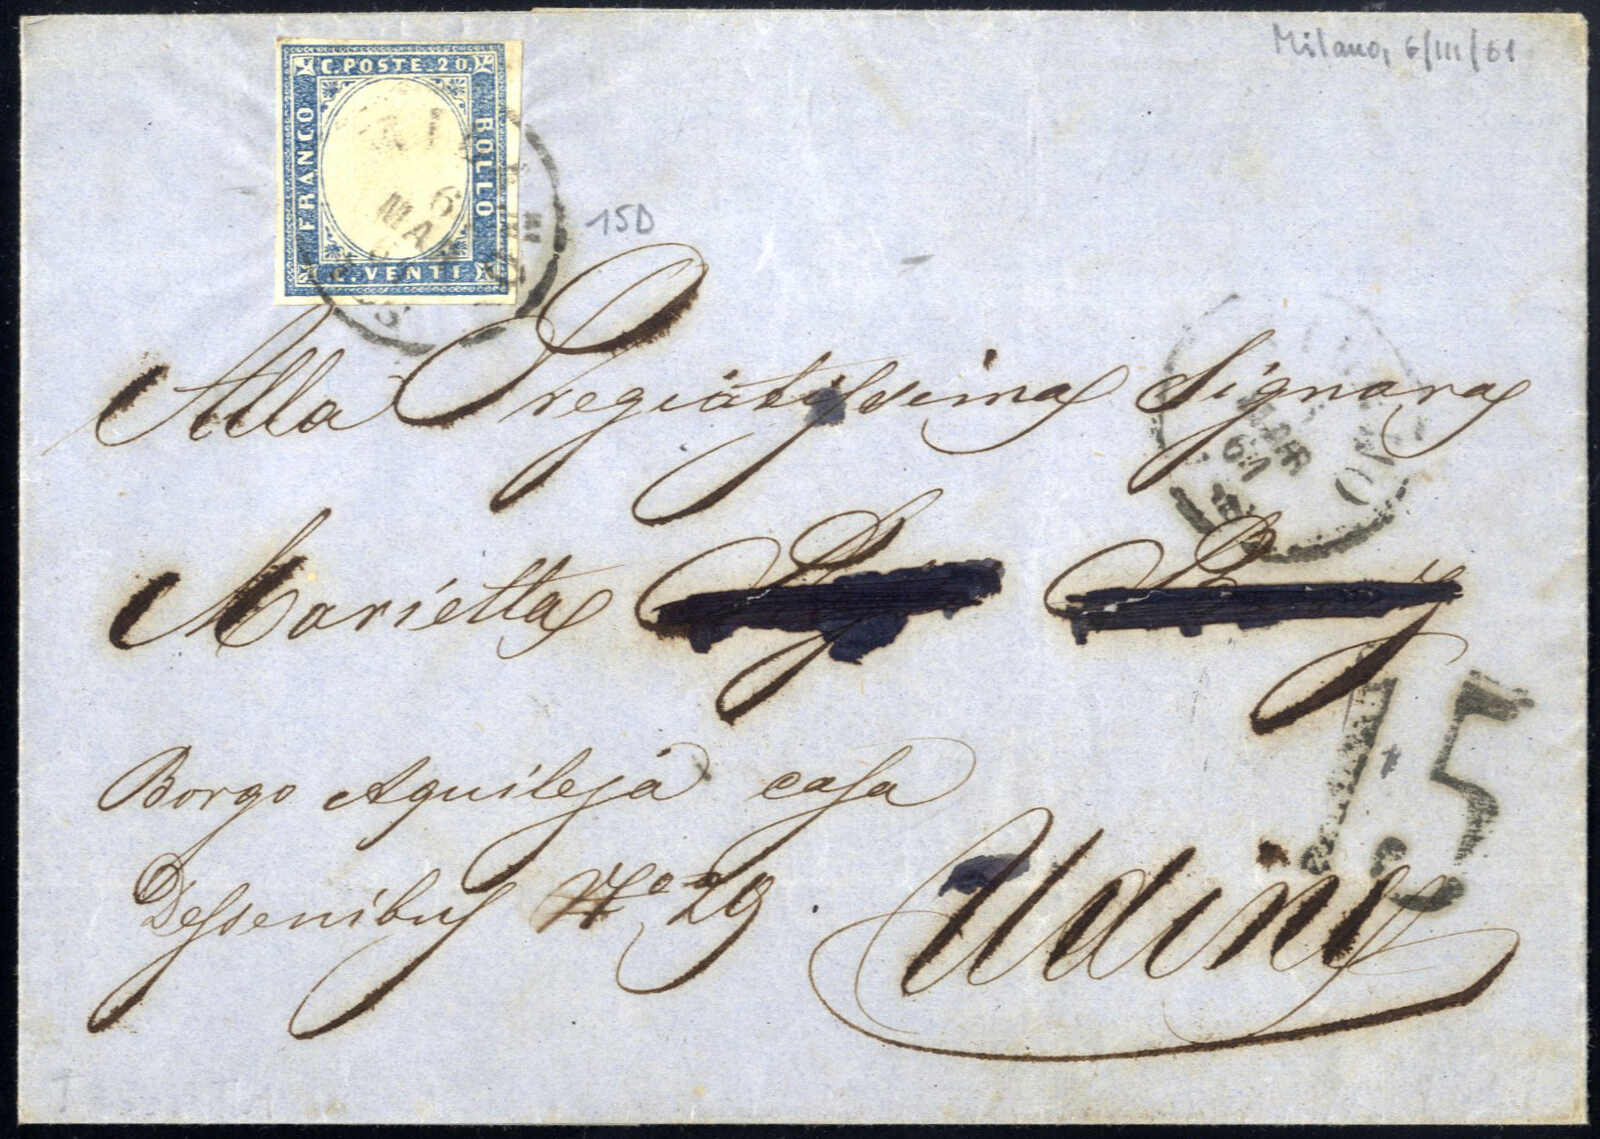 Milano, 6/III/61
C. POSTE. 20.
FRANCO
BOLLO
C. VENTI
6
MAR
15D
Alla Pregiatissima Signora
MAR
61
Marietta
15
Borgo Aquileja casa
Dessenibus No 29
Udine